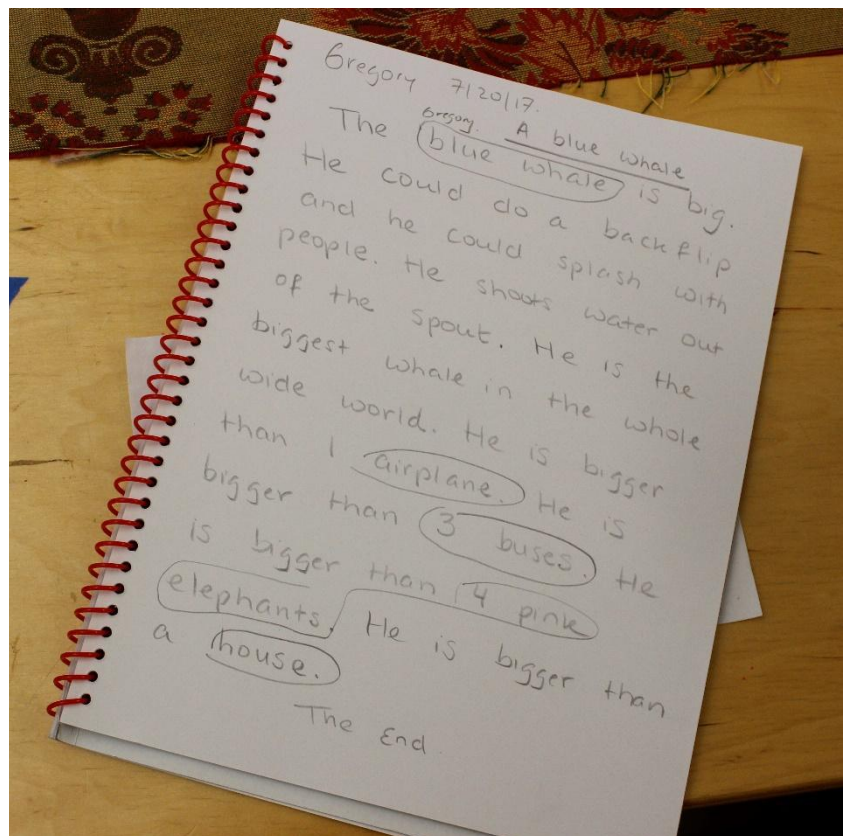 Gregory 7/20/17.
Gregory. A blue whale
The blue whale is big.
He could do a backflip
and he could splash with
people. He shoots water out
of the spout. He is the
biggest whale in the whole
wide world. He is bigger
than 1 airplane. He is
bigger than 3 buses. He
is bigger than 4 pink
elephants. He is bigger than
a house.
The End